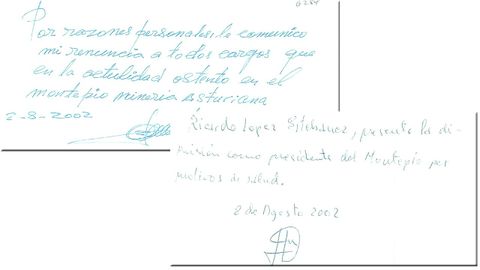 Por razones personales, le comunico
mi renuncia a todos cargos que
en la actulidad ostento en el
montepio mineria Asturiana
2-8-2002
Ricardo Lopez Estebanez, presento la di-
misión como presidente del Montepío por
motivos de salud.
2 de Agosto 2002